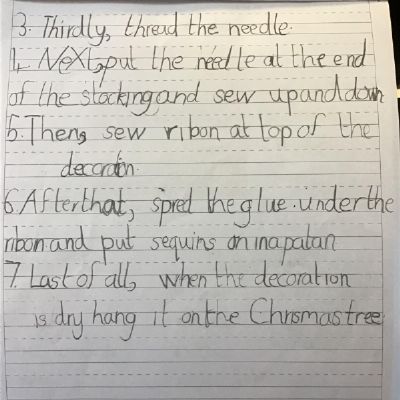 3. Thirdly, thread the needle.
4. Next, put the needle at the end
of the stocking and sew up and down
5. Then, sew ribon at top of the
decoration.
6. After that, spred the glue. under the
ribon and put sequins on in a patan
7. Last of all, when the decoration
is dry hang it on the Chrismas tree